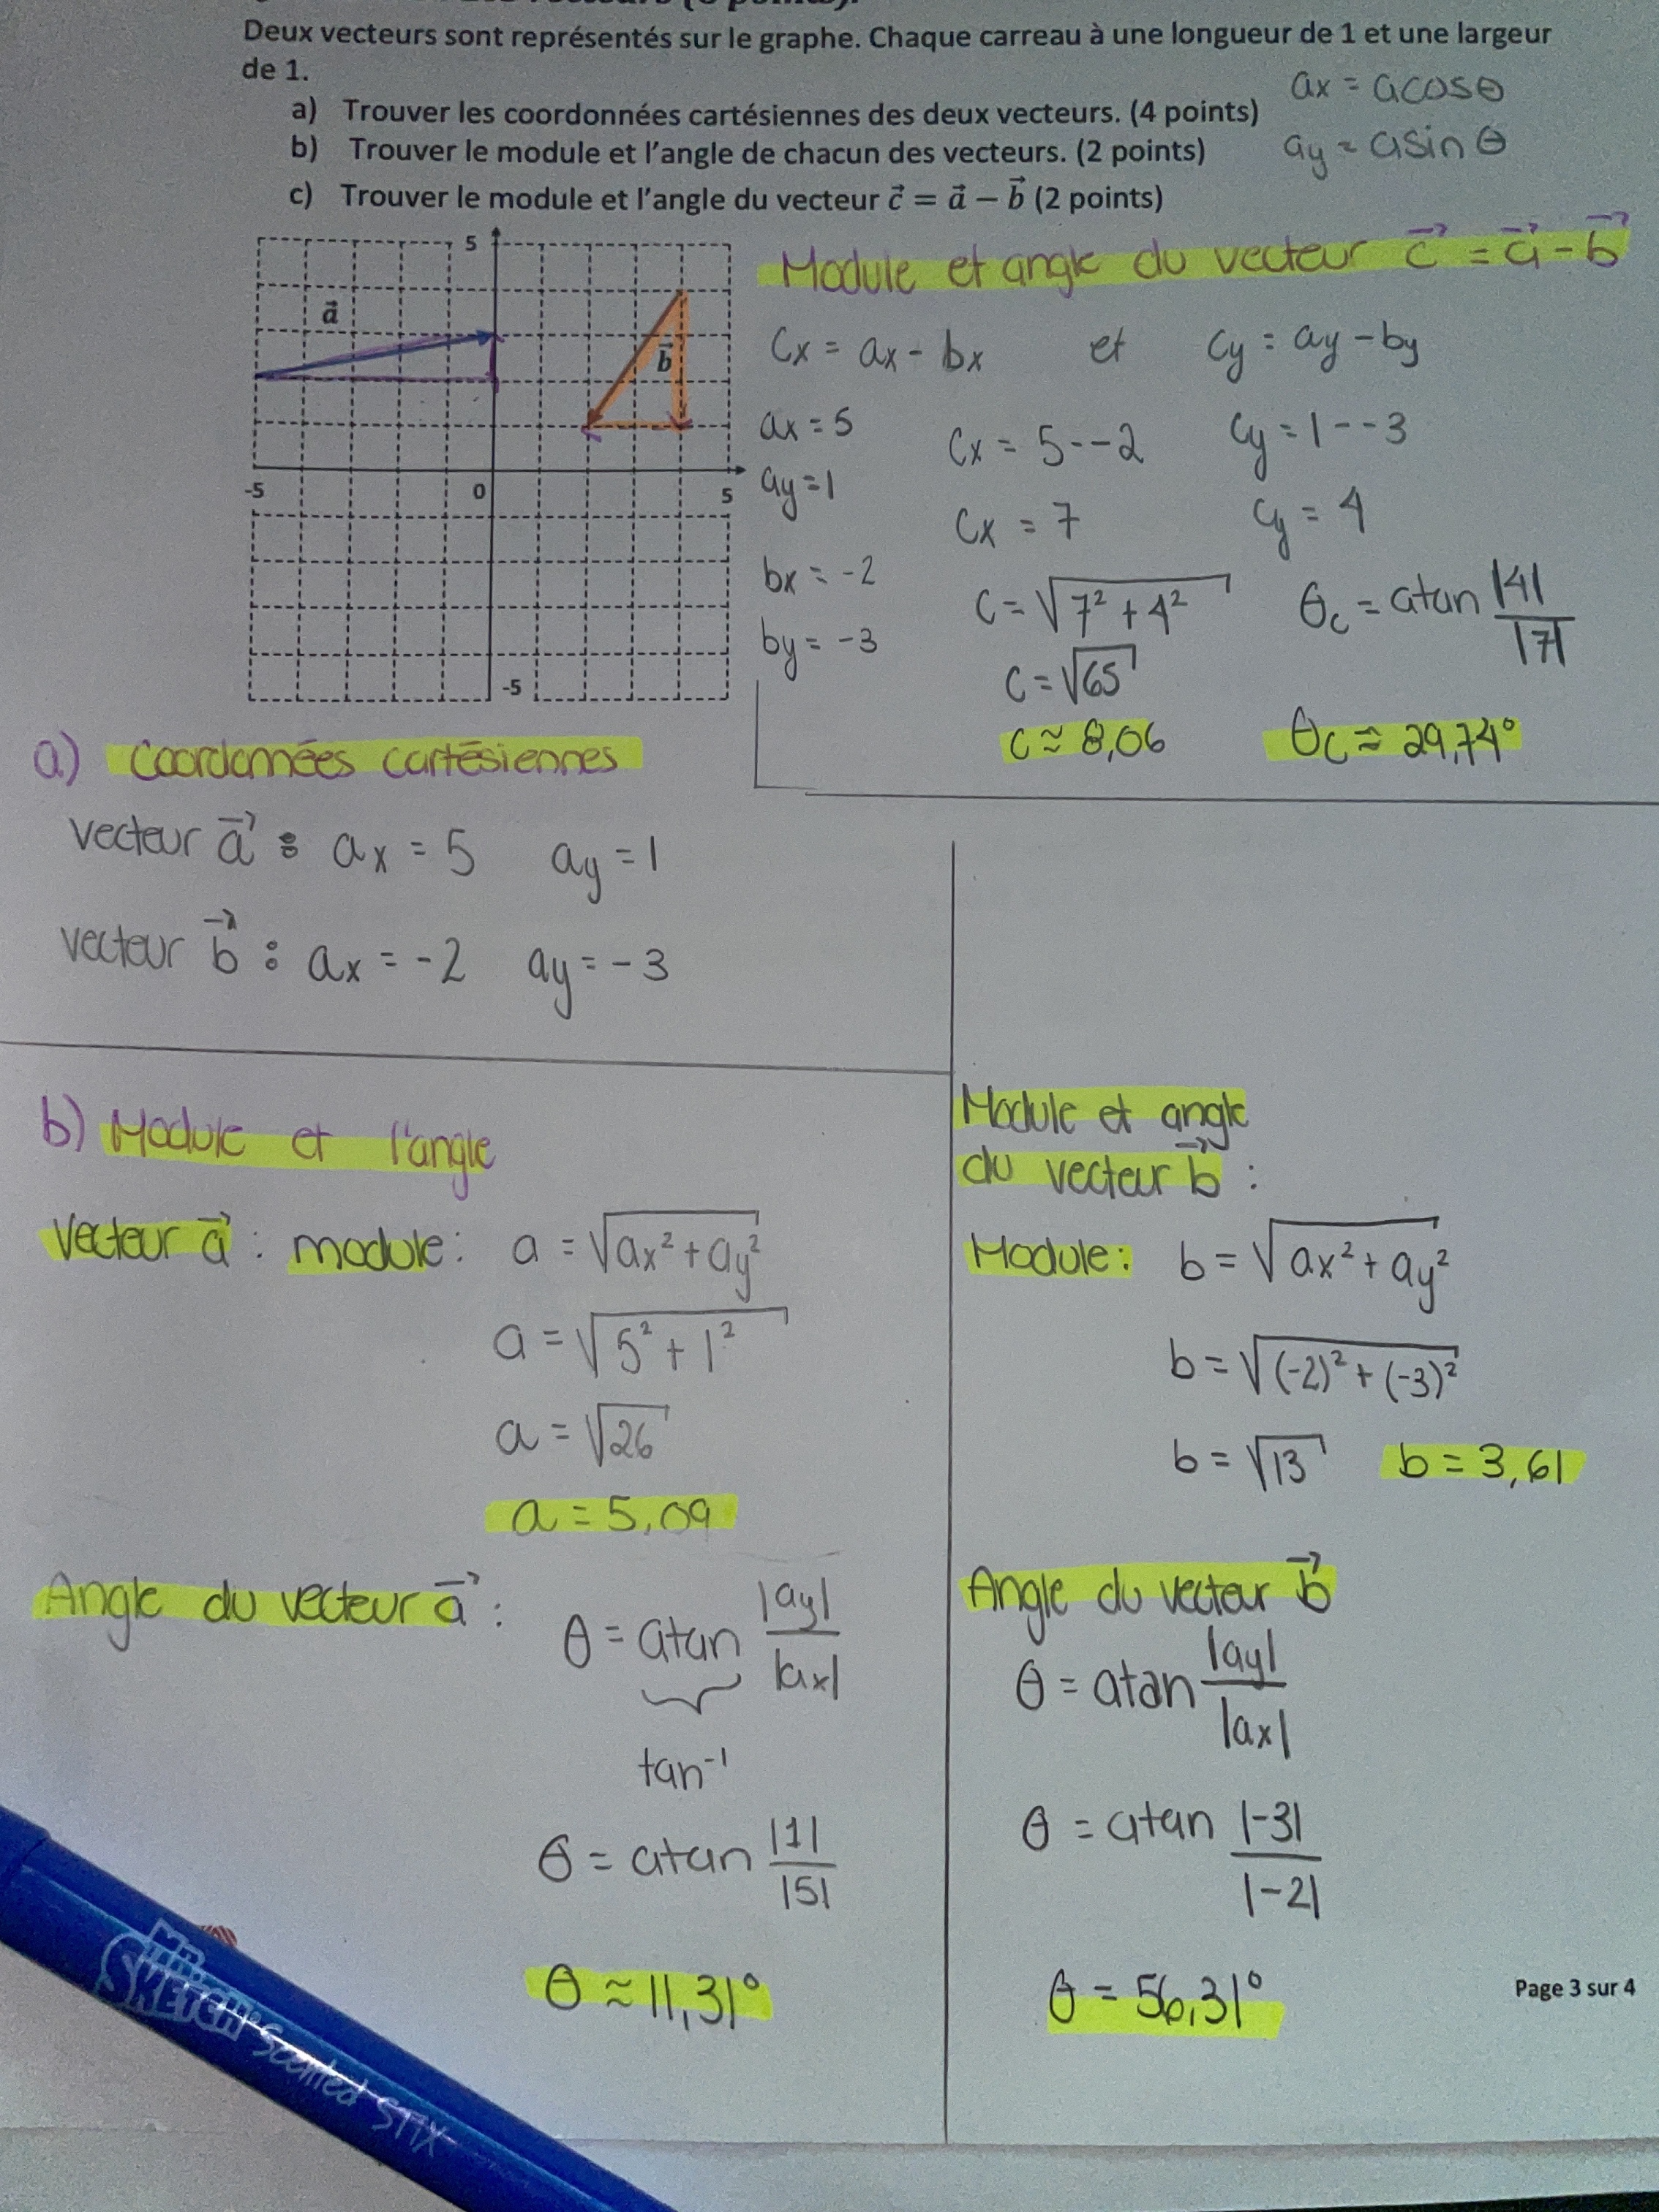 Deux vecteurs sont représentés sur le graphe. Chaque carreau à une longueur de 1 et une largeur
de 1.
a) Trouver les coordonnées cartésiennes des deux vecteurs. (4 points)
b) Trouver le module et l'angle de chacun des vecteurs. (2 points)
c) Trouver le module et l'angle du vecteur c⃗ = a⃗ − b⃗ (2 points)
ax = acosθ
ay = asinθ
5
a⃗
b⃗
-5
0
5
-5
Module et angle du vecteur c⃗ = a⃗ - b⃗
Cx = ax - bx et Cy = ay - by
ax = 5
ay = 1
bx = -2
by = -3
Cx = 5--2
Cx = 7
Cy = 1--3
Cy = 4
C = √7² + 4²
C = √65
C ≈ 8,06
θc = atan |4| / |7|
θc ≈ 29,74°
a) Coordonnées cartésiennes
vecteur a⃗ : ax = 5 ay = 1
vecteur b⃗ : ax = -2 ay = -3
b) Module et l'angle
Vecteur a⃗ : module : a = √ax² + ay²
a = √5² + 1²
a = √26
a = 5,09
Angle du vecteur a⃗ :
θ = atan |ay| / |ax|
tan⁻¹
θ = atan |1| / |5|
θ ≈ 11,31°
Module et angle
du vecteur b⃗ :
Module : b = √ax² + ay²
b = √(-2)² + (-3)²
b = √13 b = 3,61
Angle du vecteur b⃗
θ = atan |ay| / |ax|
θ = atan |-3| / |-2|
θ = 56,31°
Page 3 sur 4
MR.
SKETCH Scented STIX